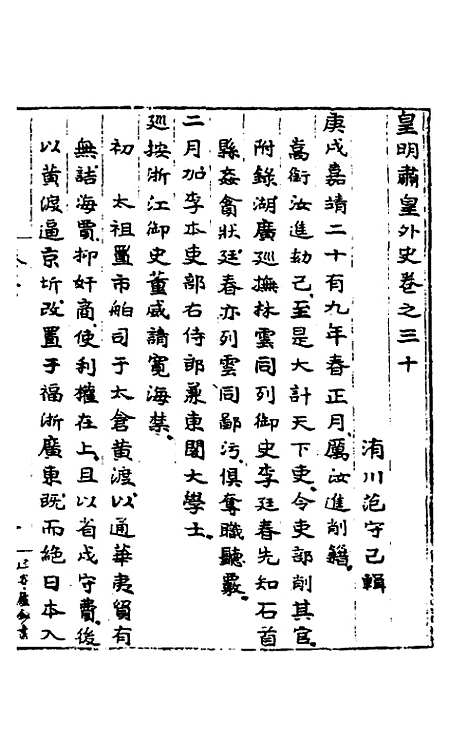 皇明肅皇外史卷之三十
洧川范守己輯
庚戌嘉靖二十有九年春正月厲汝進削籍
嵩銜汝進劾己至是大計天下吏令吏部削其官
附錄湖廣廵撫林雲同列御史李廷春先知石首
縣姦禽狀廷春亦列雲同鄙污俱奪職聽覈
二月加李本吏部右侍郎兼東閣大學士
廵按浙江御史董威請寬海禁
初太祖置市舶司于太倉黃渡以通華夷貿有
無詰海賈抑奸商使利權在上且以省戍守費後
以黃渡逼京圻改置于福浙廣東既而絕日本入